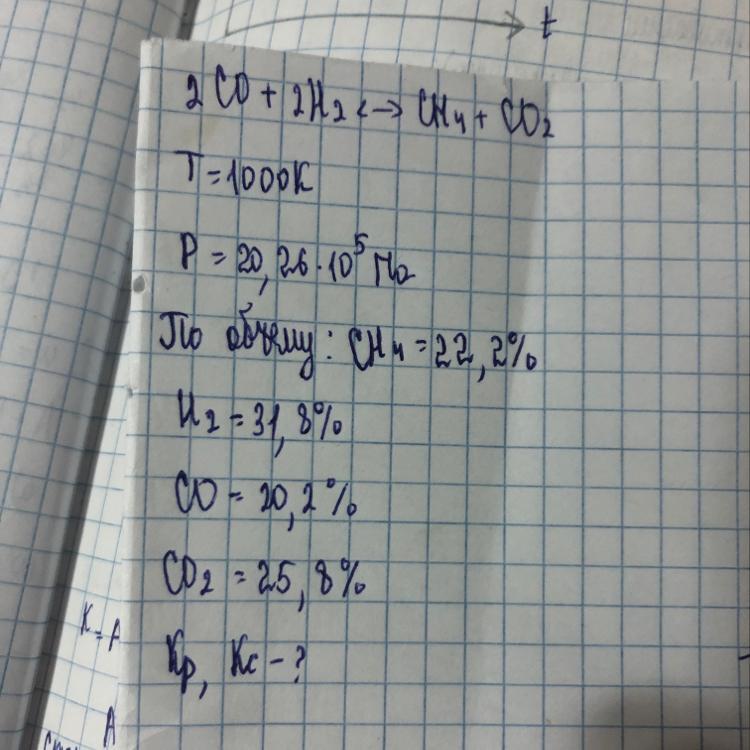 t
2CO + 2H2 <-> CH4 + CO2
T=1000K
P = 20,26·10^5 Па
По объему: CH4 = 22,2%
H2 = 31,8%
CO - 20,2%
CO2 = 25,8%
Kp, Kc - ?
K = A
A